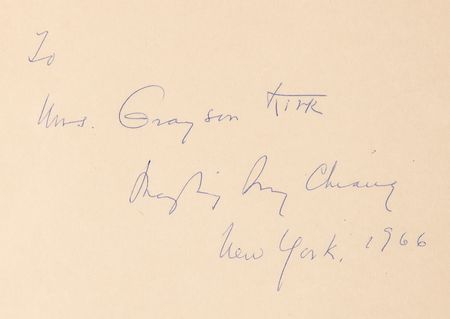 To
Mrs. Grayson Kirk
Mayling Soong Chiang
New York, 1966